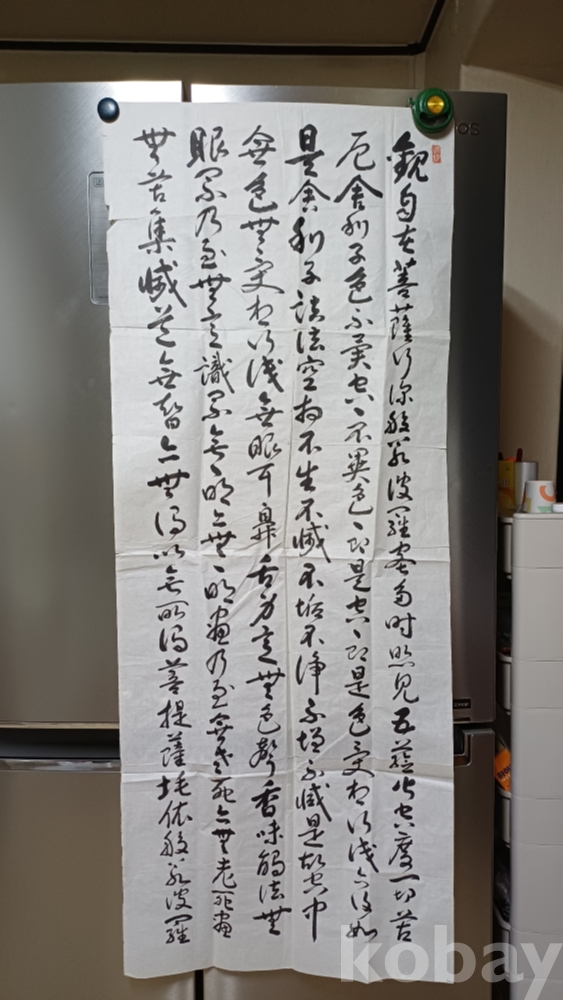 觀自在菩薩行深般若波羅蜜多時照見五蘊皆空度一切苦
厄舍利子色不異空々不異色々即是空々即是色受想行識亦復如
是舍利子諸法空相不生不滅不垢不淨不增不減是故空中
無色無受想行識無眼耳鼻舌身意無色聲香味觸法無
眼界乃至無意識界無々明亦無々明盡乃至無老死亦無老死盡
無苦集滅道無智亦無得以無所得菩提薩埵依般若波羅
kobay